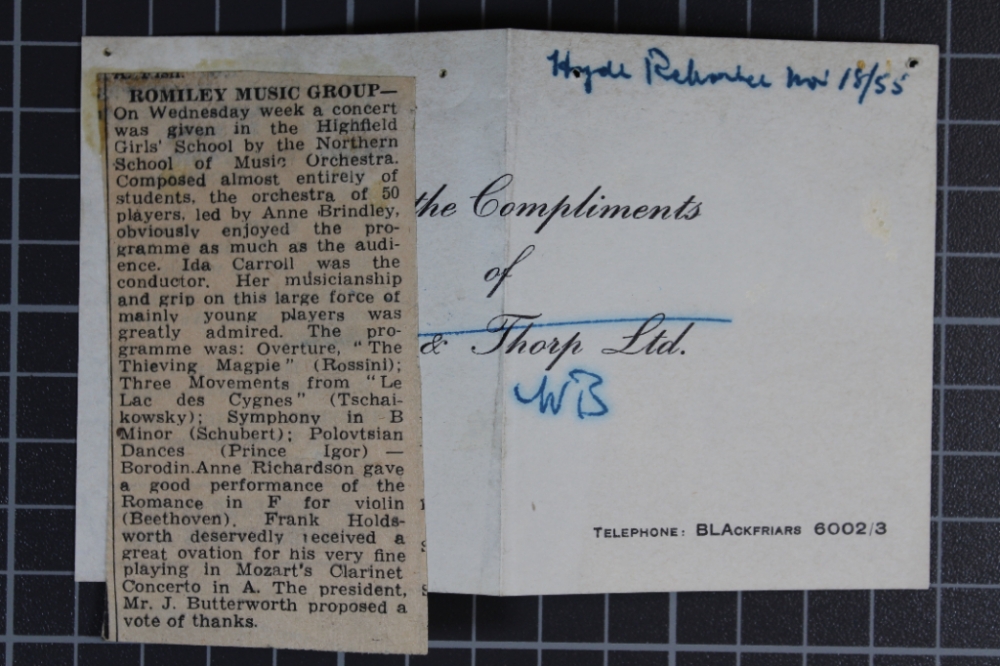 ROMILEY MUSIC GROUP—
On Wednesday week a concert
was given in the Highfield
Girls' School by the Northern
School of Music Orchestra.
Composed almost entirely of
students, the orchestra of 50
players, led by Anne Brindley,
obviously enjoyed the pro-
gramme as much as the audi-
ence. Ida Carroll was the
conductor. Her musicianship
and grip on this large force of
mainly young players was
greatly admired. The pro-
gramme was: Overture, "The
Thieving Magpie" (Rossini);
Three Movements from "Le
Lac des Cygnes" (Tschai-
kowsky); Symphony in B
Minor (Schubert); Polovtsian
Dances (Prince Igor) —
Borodin. Anne Richardson gave
a good performance of the
Romance in F for violin
(Beethoven). Frank Holds-
worth deservedly received a
great ovation for his very fine
playing in Mozart's Clarinet
Concerto in A. The president,
Mr. J. Butterworth proposed a
vote of thanks.
Hyde Reporter Nov 18/55
the Compliments
of
& Thorp Ltd.
WB
TELEPHONE: BLACKFRIARS 6002/3